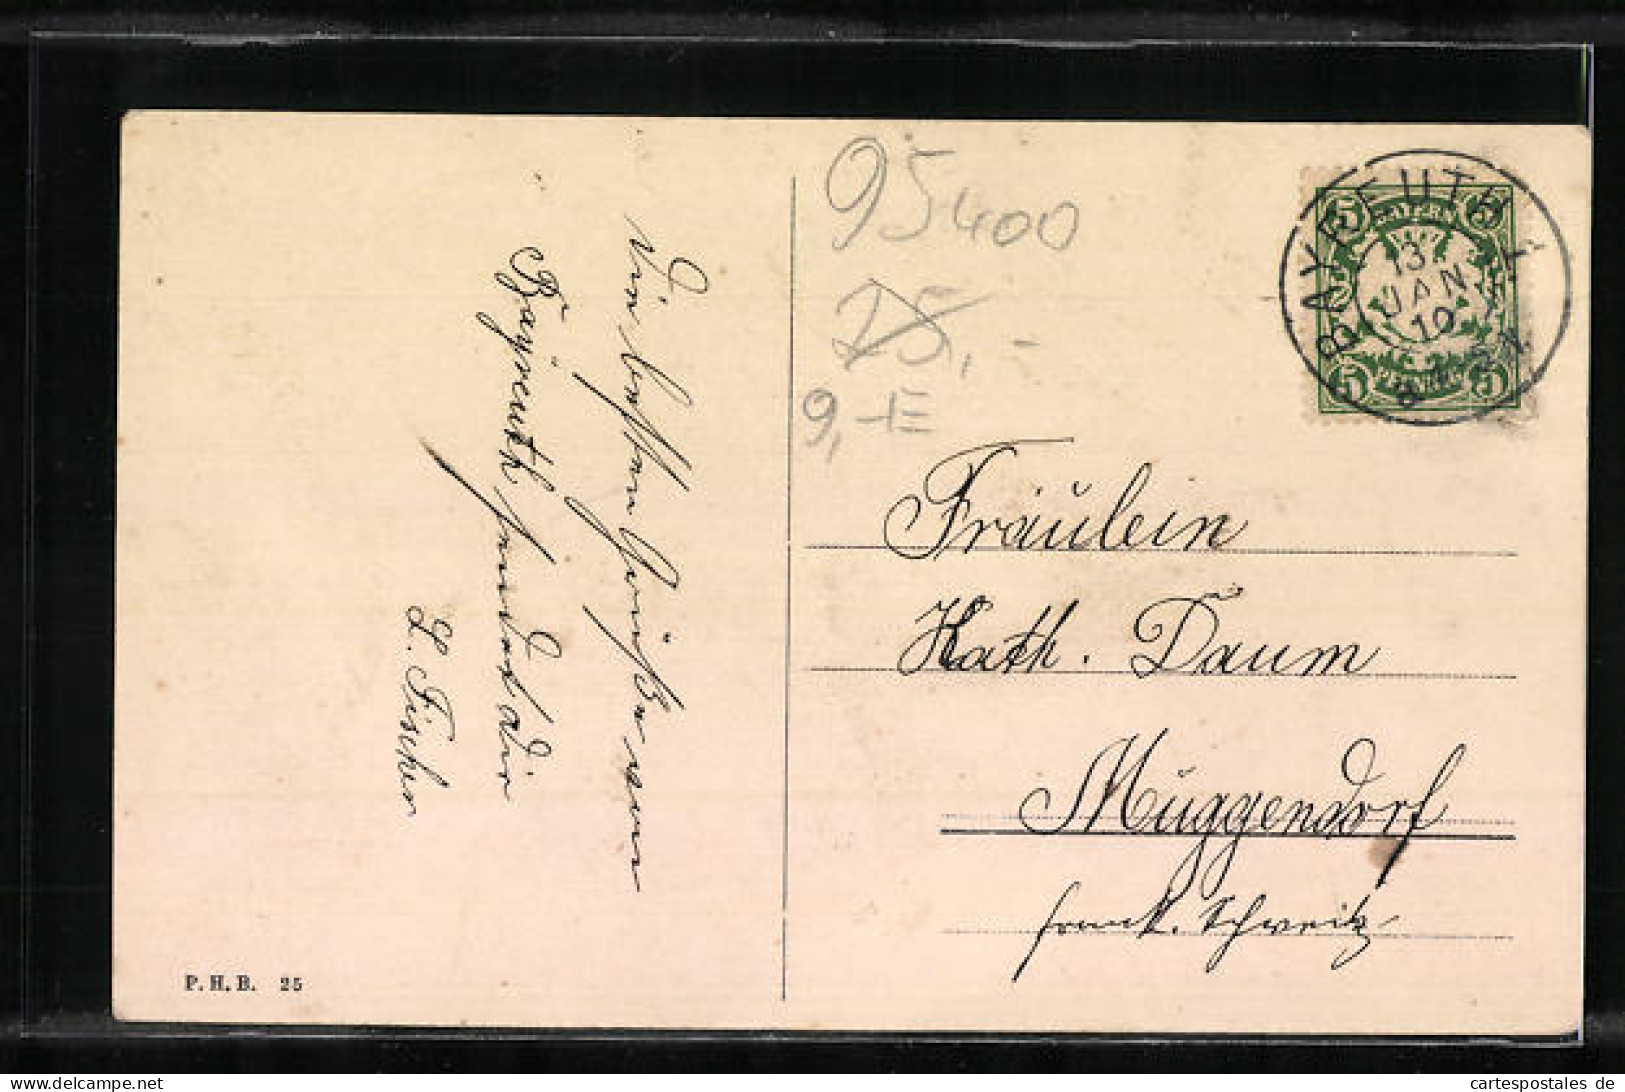 Die besten Grüße von
Bayreuth sendet dir
L. Fischer
P.H.B. 25
95400
25,-
9,-E
BAYREUTH 1
13
JAN
10
BAYERN
PFENNIG
5 5
5 5
Fräulein
Kath. Daum
Müggendorf
fränk. Schweiz
cartespostales de